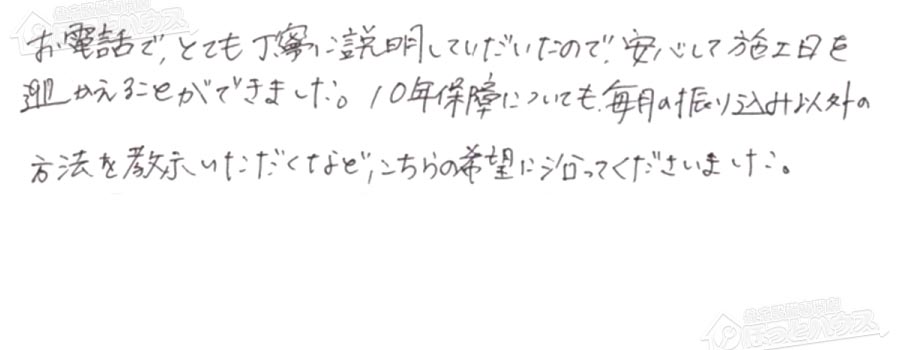 お電話で、とても丁寧に説明していただいたので、安心して施工日を
迎かえることができました。10年保障についても、毎月の振り込み以外の
方法を教示いただくなど、こちらの希望に沿ってくださいました。
住宅設備専門店
ほっとハウス